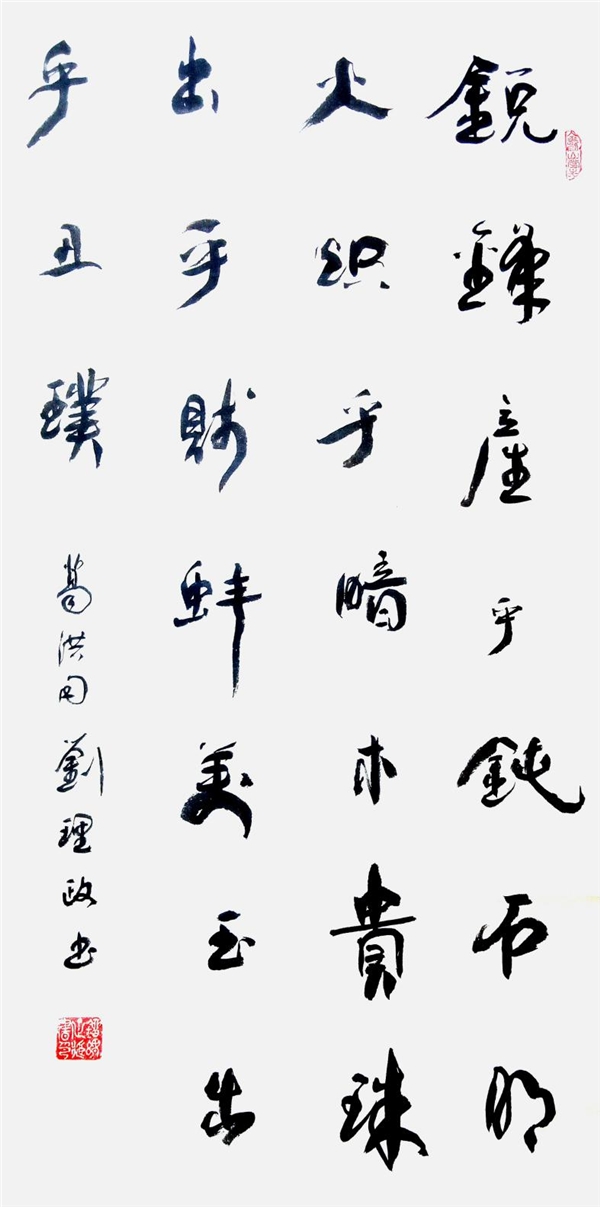 鋭鋒產乎鈍石明
火炽乎暗木貴珠
出乎賤蚌美玉出
乎丑璞
葛洪句劉理政书